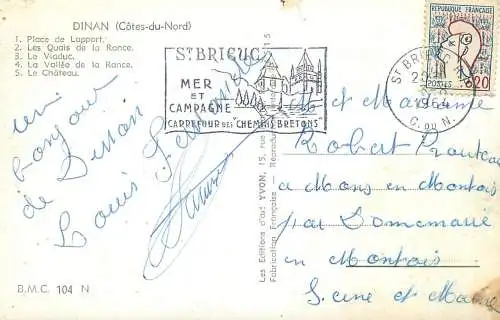 DINAN (Côtes-du-Nord)
1. Place de Lapport.
2. Les Quais de la Rance.
3. Le Viaduc.
4. La Vallée de la Rance.
5. Le Château.
bonjour
de Dinan
Louis
B.M.C. 104 N
Les Editions d'art YVON, 15, rue
Fabrication Française - Reproduc
15
ST BRIEUC
MER
ET
CAMPAGNE
CARREFOUR DES "CHEMINS BRETONS"
RÉPUBLIQUE FRANÇAISE
POSTES
0,20
ST BRIEUC
C. DU N.
M et Madame
Robert
a Mons en Montois
par Donnemarie
en Montois
Seine et Marne